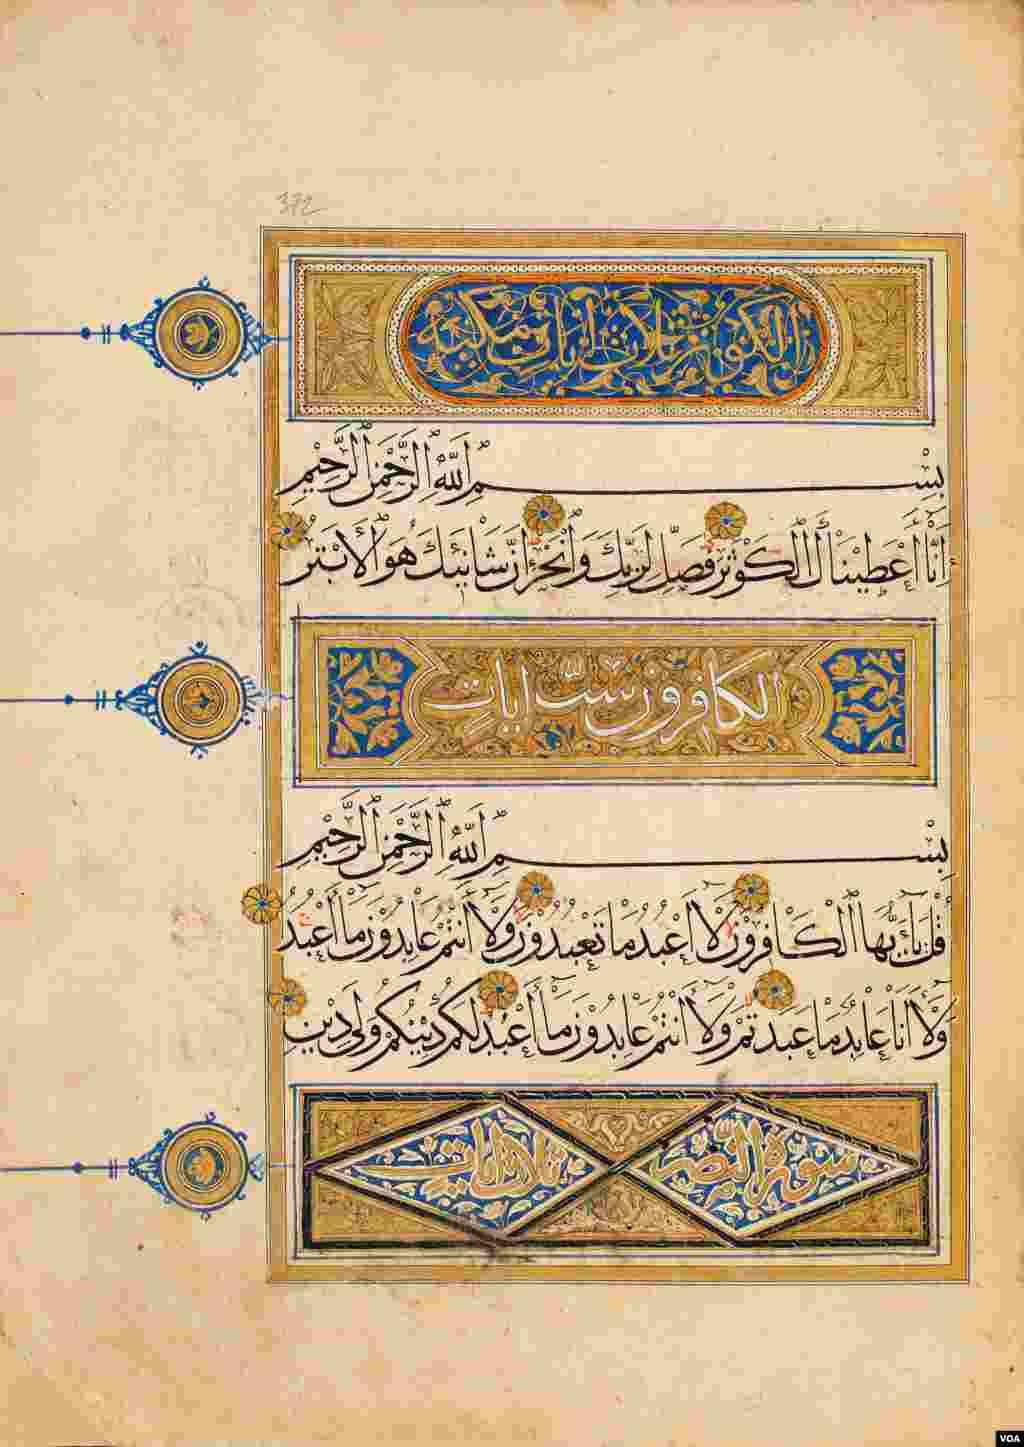 372
الكوثر ثلاث آيات مكية
بِسْمِ اللَّهِ الرَّحْمٰنِ الرَّحِيْمِ
إِنَّا أَعْطَيْنَاكَ الْكَوْثَرَ فَصَلِّ لِرَبِّكَ وَانْحَرْ إِنَّ شَانِئَكَ هُوَ الْأَبْتَرُ
الكافرون ستّ ايات
بِسْمِ اللَّهِ الرَّحْمٰنِ الرَّحِيْمِ
قُلْ يَا أَيُّهَا الْكَافِرُونَ لَا أَعْبُدُ مَا تَعْبُدُونَ وَلَا أَنْتُمْ عَابِدُونَ مَا أَعْبُدُ
وَلَا أَنَا عَابِدٌ مَا عَبَدْتُمْ وَلَا أَنْتُمْ عَابِدُونَ مَا أَعْبُدُ لَكُمْ دِيْنُكُمْ وَلِيَ دِيْنِ
سورة النصر ثلاث ايات
VOA